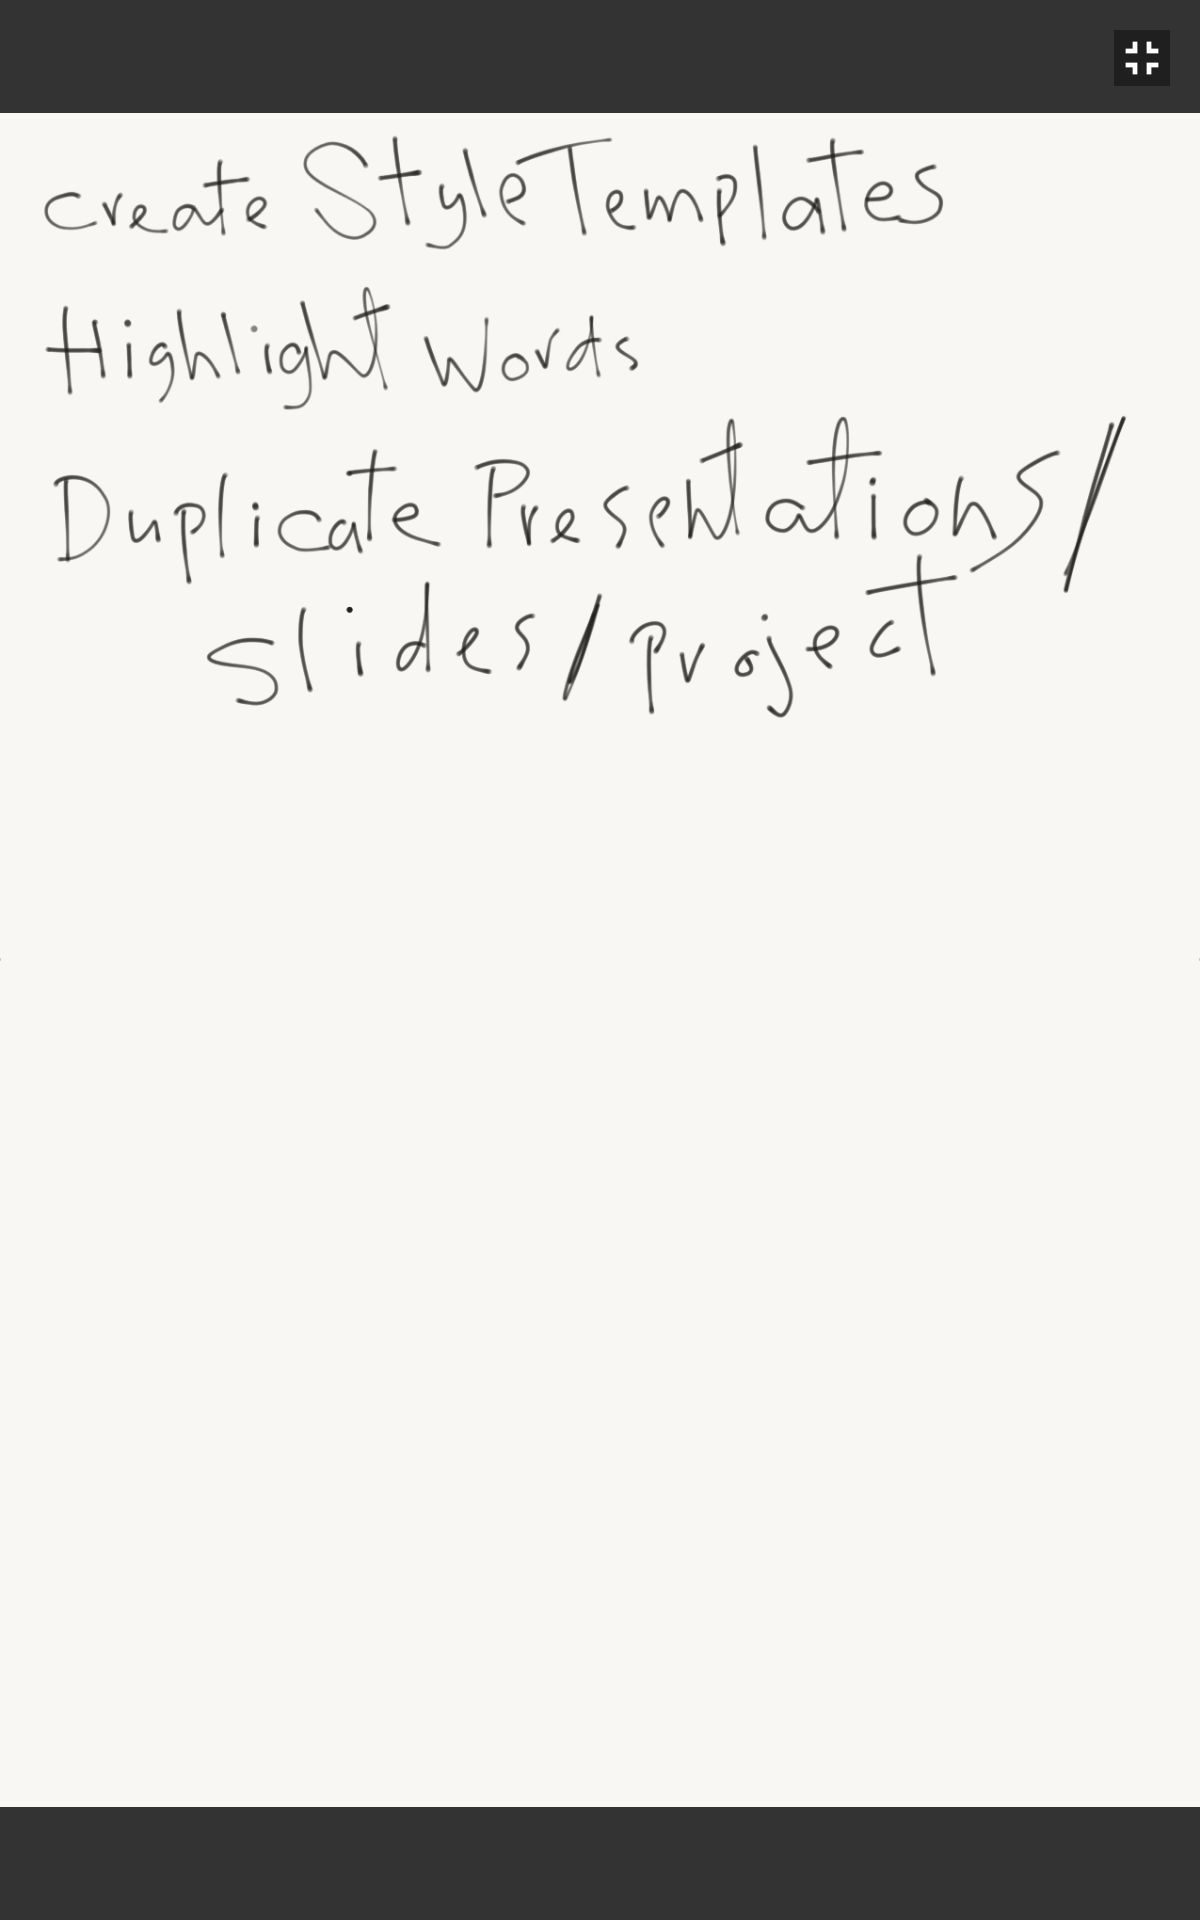 create StyleTemplates
Highlight Words
Duplicate Presentations/
slides/project